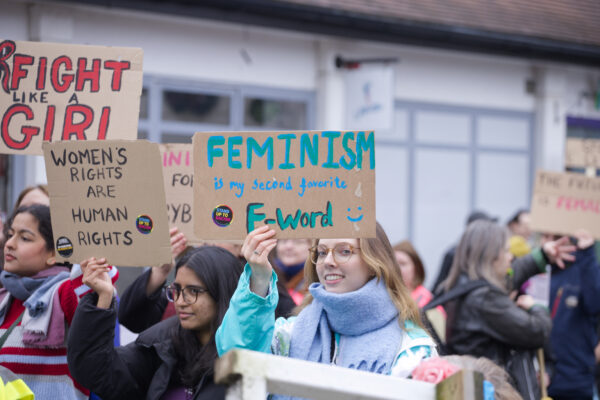 FIGHT
LIKE A
GIRL
WOMEN'S
RIGHTS
ARE
HUMAN
RIGHTS
FEMINISM
is my second favorite
F-Word
FOR
THE
IS FEMALE